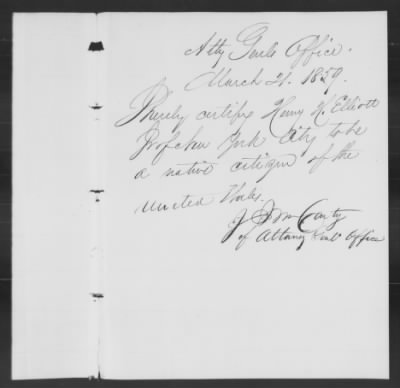 Atty Genls Office.
March 21. 1859.
I hereby certify Henry H. Elliott
of New York City to be
a native citizen of the
United States.
J. J. McCarty
of Attorney Genls Office